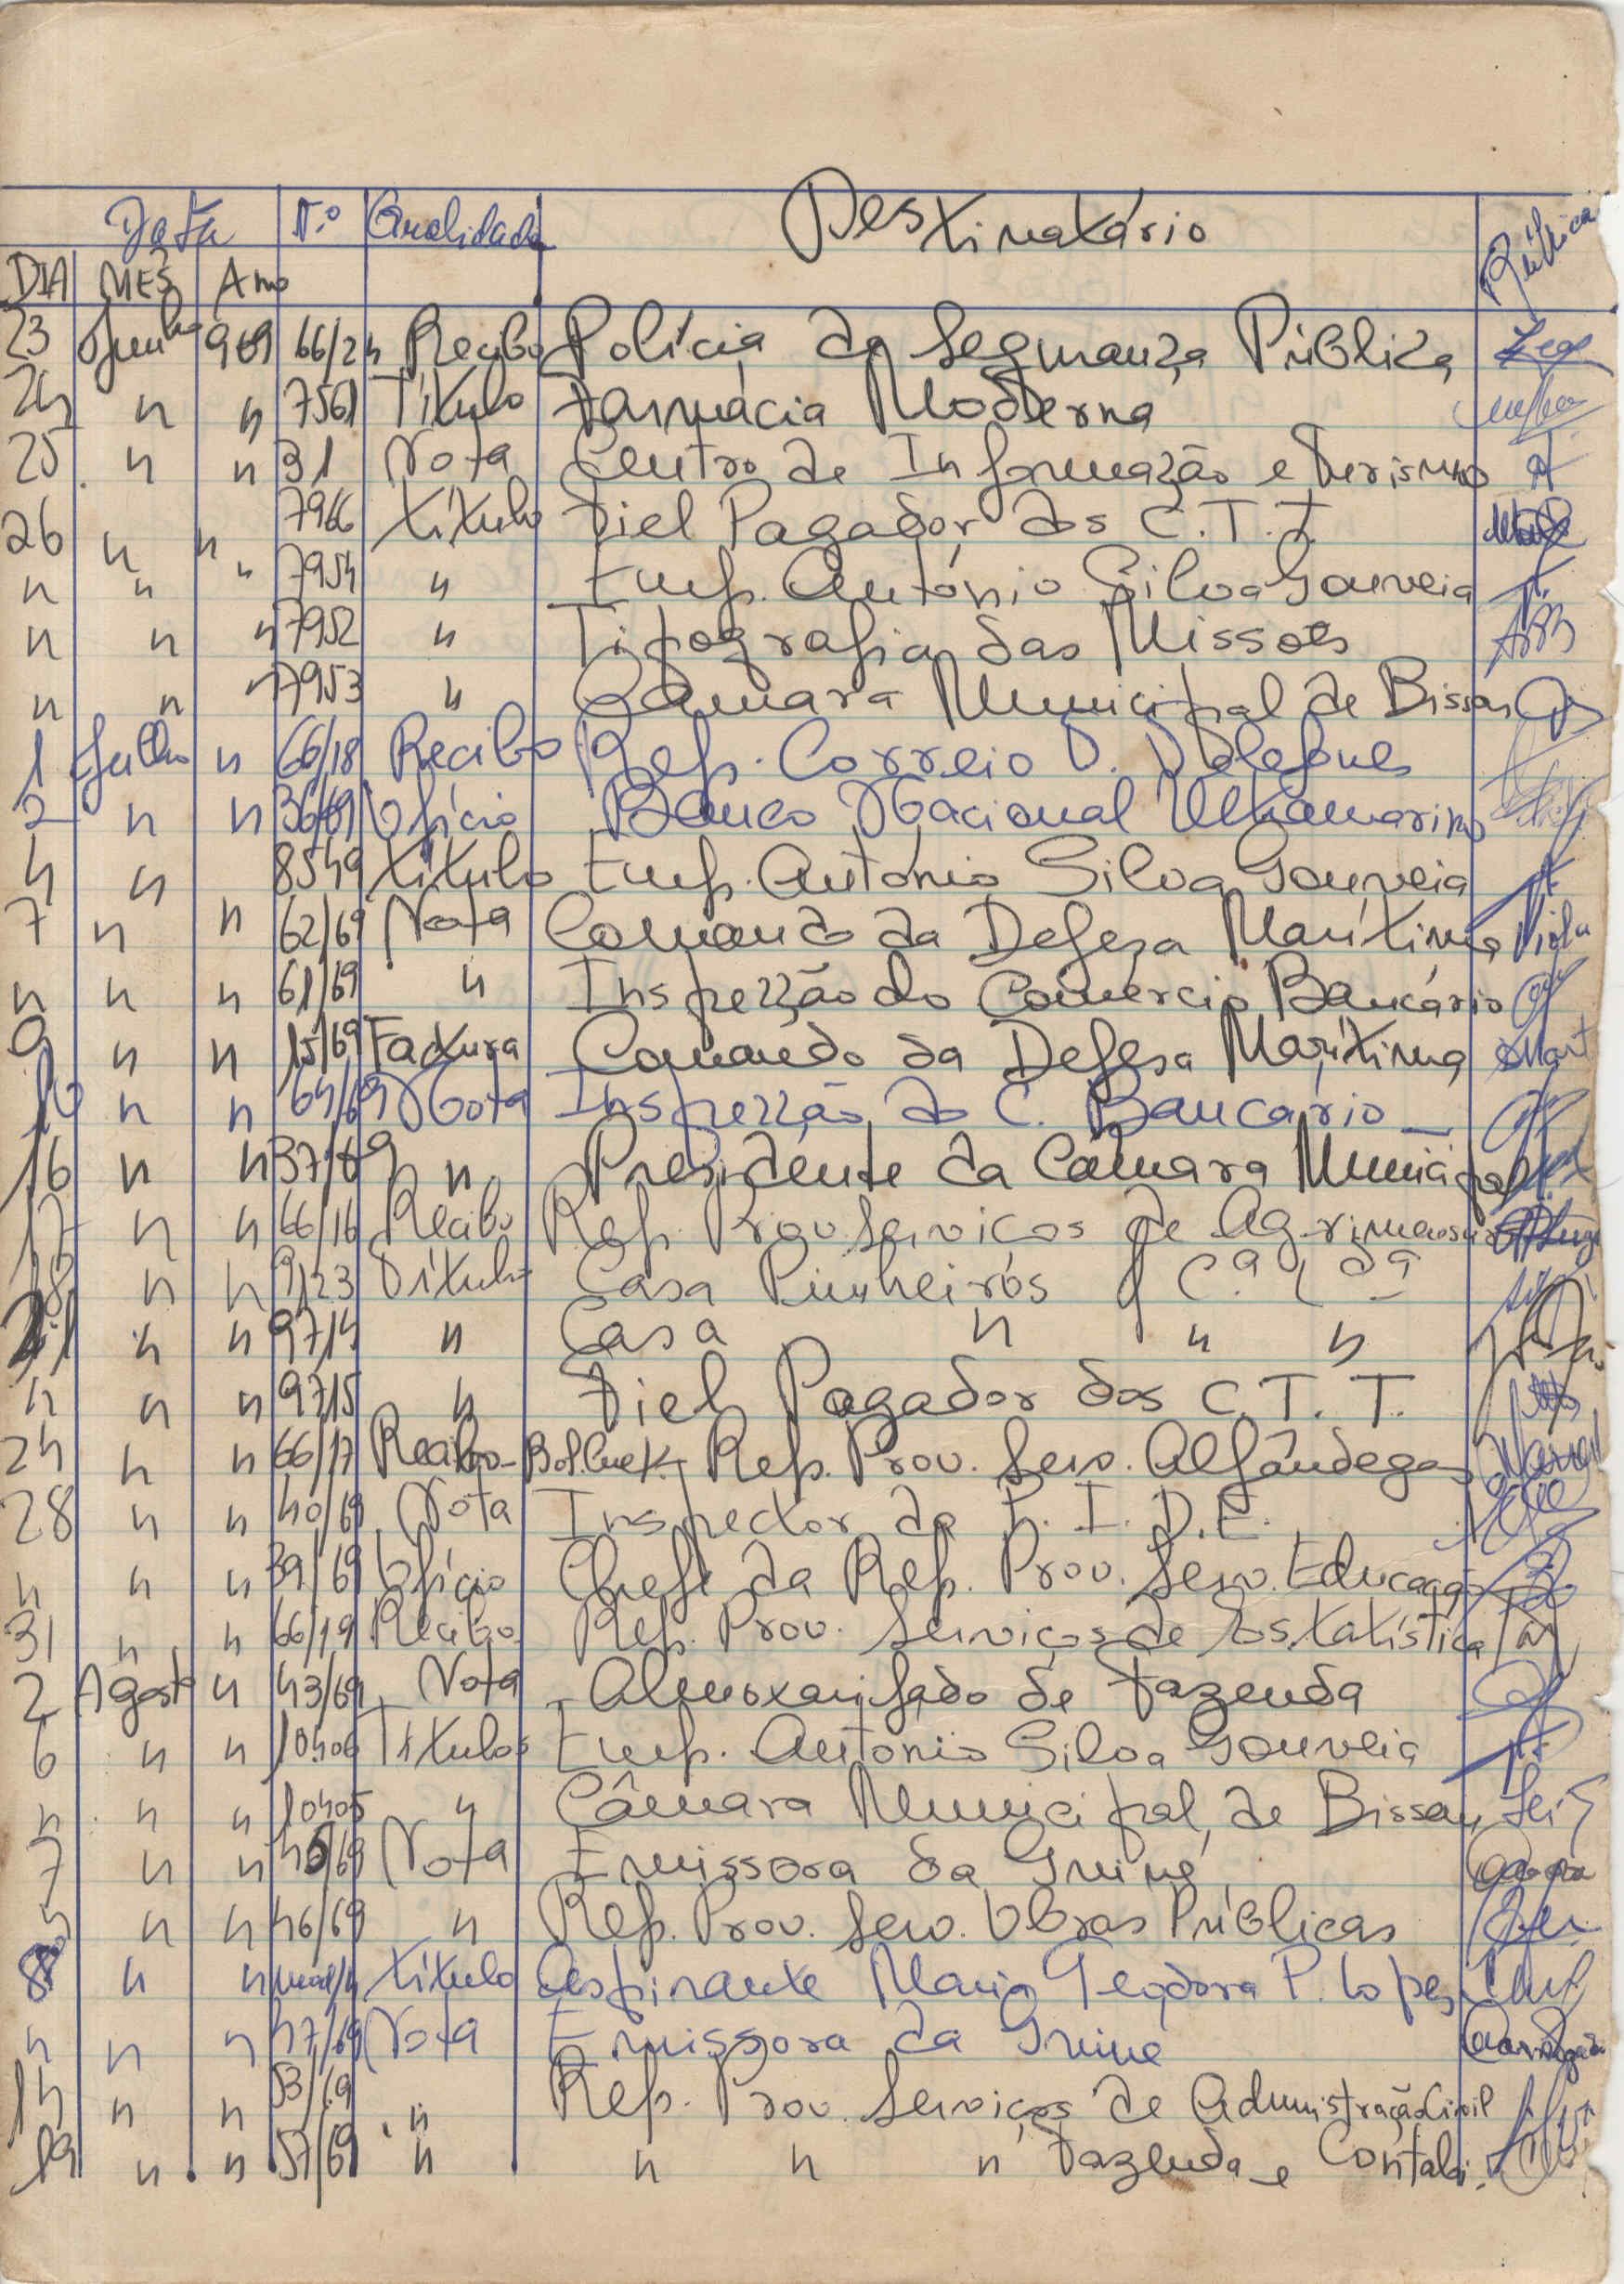 Data N.º Qualidade Destinatário Rúbrica
DIA MÊS Ano
23 Junho 969 66/24 Recibo Polícia da Segurança Pública
24 " " 7561 Título Farmácia Moderna
25 " " 31 Nota Centro de Informação e Turismo
26 " " 7966 Título Fiel Pagador dos C.T.T.
" " " 7954 " Emp. António Silva Gouveia
" " " 7952 " Tipografia das Missões
" " " 7953 " Câmara Municipal de Bissau
1 Julho " 66/18 Recibo Rep. Correio T. Telefones
2 " " 36/69 Ofício Banco Nacional Ultramarino
4 " 8549 Título Emp. António Silva Gouveia
7 " " 62/69 Nota Comando da Defesa Marítima
" " " 61/69 " Inspecção do Comércio Bancário
9 " " 15/69 Factura Comando da Defesa Marítima
10 " " 64/69 Nota Inspecção do C. Bancário
16 " " 37/69 " Presidente da Câmara Municipal
17 " " 66/16 Recibo Rep. Prov Serviços de Agrimensura
18 " " 9123 Título Casa Pinheiros & C.ª L dª
21 " " 9714 " Casa " " "
" " " 9715 " Fiel Pagador dos C.T.T.
24 " " 66/17 Recibo Rep. Prov. Serv. Alfândegas
28 " " 40/69 Nota Inspector da P.I.D.E.
" " " 39/69 Ofício Chefe da Rep. Prov. Serv. Educação
31 " " 66/19 Recibo Rep. Prov. Serviços de Estatística
2 Agosto " 43/69 Nota Almoxarifado de Fazenda
6 " " 10406 Títulos Emp. António Silva Gouveia
" " " 10405 " Câmara Municipal de Bissau
7 " " 45/69 Nota Emissora da Guiné
" " " 46/69 " Rep. Prov. Serv. Obras Públicas
8 " " Título Aspirante Maria Teodora P. Lopes
" " " 47/69 Nota Emissora da Guiné
14 " " 53/69 " Rep. Prov. Serviços de Administração Civil
19 " " 57/69 " " " " Fazenda e Contabi.